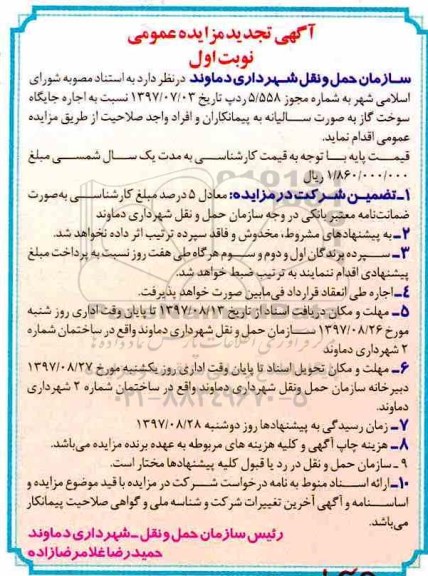 آگهی تجدید مزایده عمومی
نوبت اول
سازمان حمل و نقل شهرداری دماوند در نظر دارد به استناد مصوبه شورای
اسلامی شهر به شماره مجوز ۵/۵۵۸ ردپ تاریخ ۱۳۹۷/۰۷/۰۳ نسبت به اجاره جایگاه
سوخت گاز به صورت سالیانه به پیمانکاران و افراد واجد صلاحیت از طریق مزایده
عمومی اقدام نماید.
قیمت پایه با توجه به قیمت کارشناسی به مدت یک سال شمسی مبلغ
۱/۸۶۰/۰۰۰/۰۰۰ ریال
۱ـ تضمین شرکت در مزایده: معادل ۵ درصد مبلغ کارشناسی به صورت
ضمانت‌نامه معتبر بانکی در وجه سازمان حمل و نقل شهرداری دماوند
۲ـ به پیشنهادهای مشروط، مخدوش و فاقد سپرده ترتیب اثر داده نخواهد شد.
۳ـ سپرده برندگان اول و دوم و سوم هرگاه طی هفت روز نسبت به پرداخت مبلغ
پیشنهادی اقدام ننمایند به ترتیب ضبط خواهد شد.
۴ـ اجاره طی انعقاد قرارداد فی‌مابین صورت خواهد پذیرفت.
۵ـ مهلت و مکان دریافت اسناد از تاریخ ۱۳۹۷/۰۸/۱۳ تا پایان وقت اداری روز شنبه
مورخ ۱۳۹۷/۰۸/۲۶ سازمان حمل و نقل شهرداری دماوند واقع در ساختمان شماره
۲ شهرداری دماوند
۶ـ مهلت و مکان تحویل اسناد تا پایان وقت اداری روز یکشنبه مورخ ۱۳۹۷/۰۸/۲۷
دبیرخانه سازمان حمل ونقل شهرداری دماوند واقع در ساختمان شماره ۲ شهرداری
دماوند.
۷ـ زمان رسیدگی به پیشنهادها روز دوشنبه ۱۳۹۷/۰۸/۲۸
۸ـ هزینه چاپ آگهی و کلیه هزینه های مربوطه به عهده برنده مزایده می‌باشد.
۹ـ سازمان حمل و نقل در رد یا قبول کلیه پیشنهادها مختار است.
۱۰ـ ارائه اسناد منوط به نامه درخواست شرکت در مزایده با قید موضوع مزایده و
اساسنامه و آگهی آخرین تغییرات شرکت و شناسه ملی و گواهی صلاحیت پیمانکار
می‌باشد.
رئیس سازمان حمل و نقل ـ شهرداری دماوند
حمیدرضا غلامرضازاده
۰۲۱-۸۸۳۴۹۶۷۰-۵